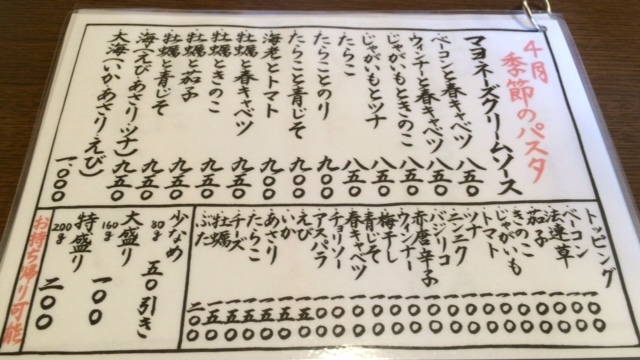 4月
季節のパスタ
マヨネーズクリームソース
ベーコンと春キャベツ 八五〇
ウィンナーと春キャベツ 八五〇
じゃがいもときのこ 八五〇
じゃがいもとツナ 八五〇
たらこ 八五〇
たらことのり 九〇〇
たらこと青じそ 九〇〇
海老とトマト 九〇〇
牡蠣と春キャベツ 九五〇
牡蠣ときのこ 九五〇
牡蠣と茄子 九五〇
牡蠣と青じそ 九五〇
海(えびあさりツナ) 九五〇
大海(いかあさりえび) 一、〇〇〇
トッピング
ベーコン 一〇〇
法連草 一〇〇
茄子 一〇〇
きのこ 一〇〇
じゃがいも 一〇〇
トマト 一〇〇
ツナ 一〇〇
ニンニク 一〇〇
バジリコ 一〇〇
赤唐辛子 一〇〇
ウィンナー 一〇〇
梅干し 一〇〇
青じそ 一〇〇
春キャベツ 一〇〇
チョリソー 一〇〇
アスパラ 一〇〇
えび 一五〇
いか 一五〇
あさり 一五〇
たらこ 一五〇
チーズ 一五〇
牡蠣 一五〇
ぶた 二〇〇
少なめ 80g 五〇引き
大盛り 160g 一〇〇
特盛り 200g 二〇〇
お持ち帰り可能